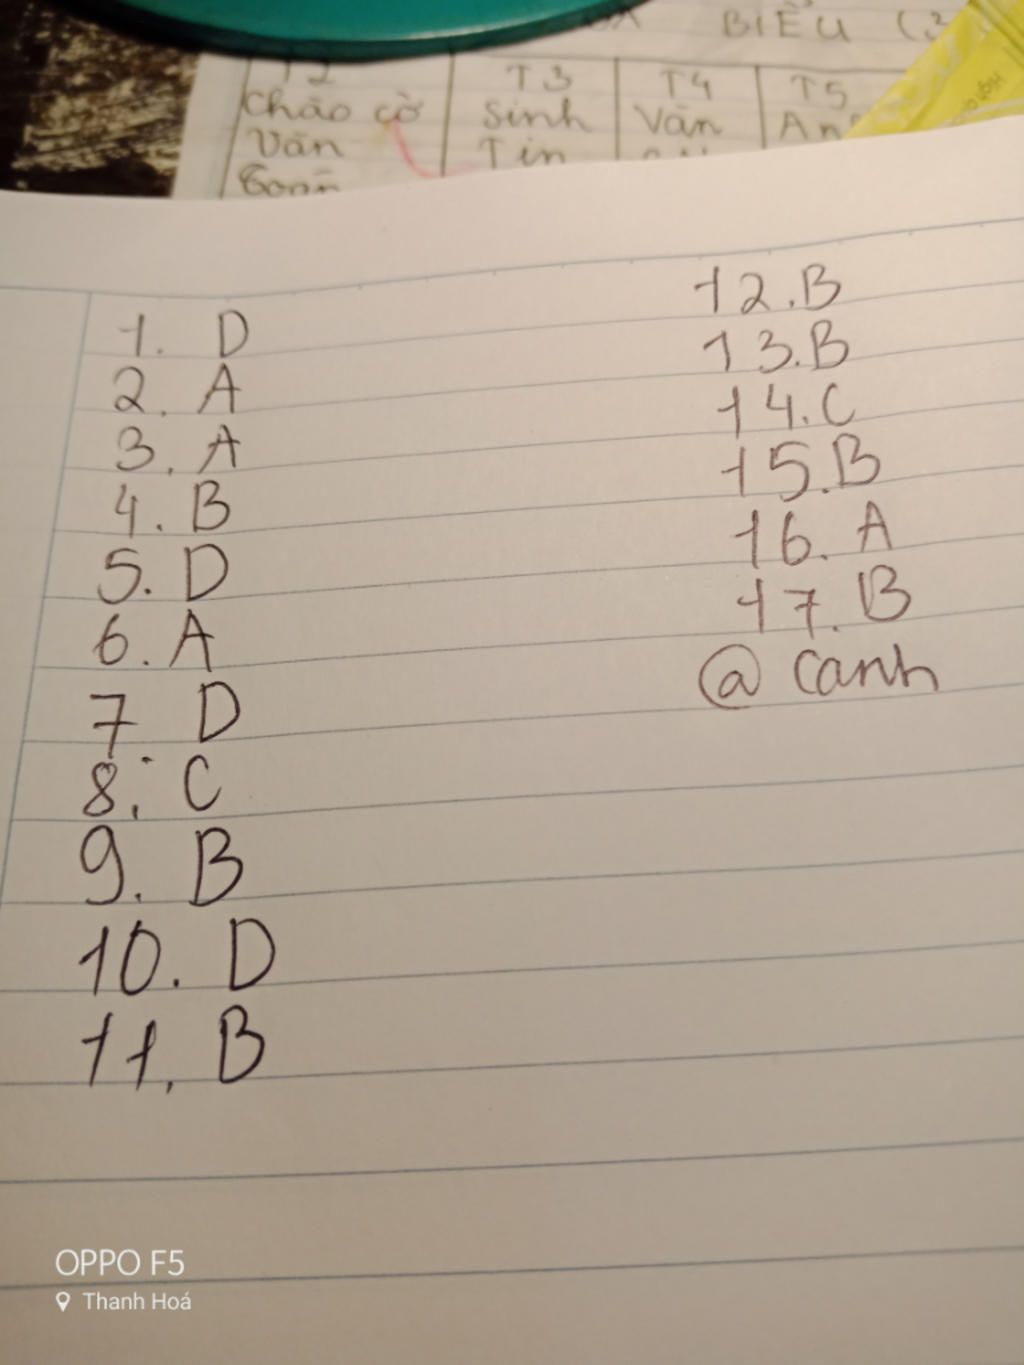 BIỂU (3
T2 T3 T4 T5
Chào cờ Sinh Văn An
Văn Tin
Toán
1. D
2. A
3. A
4. B
5. D
6. A
7. D
8. C
9. B
10. D
11. B
12. B
13. B
14. C
15. B
16. A
17. B
@ canh
OPPO F5
Thanh Hoá